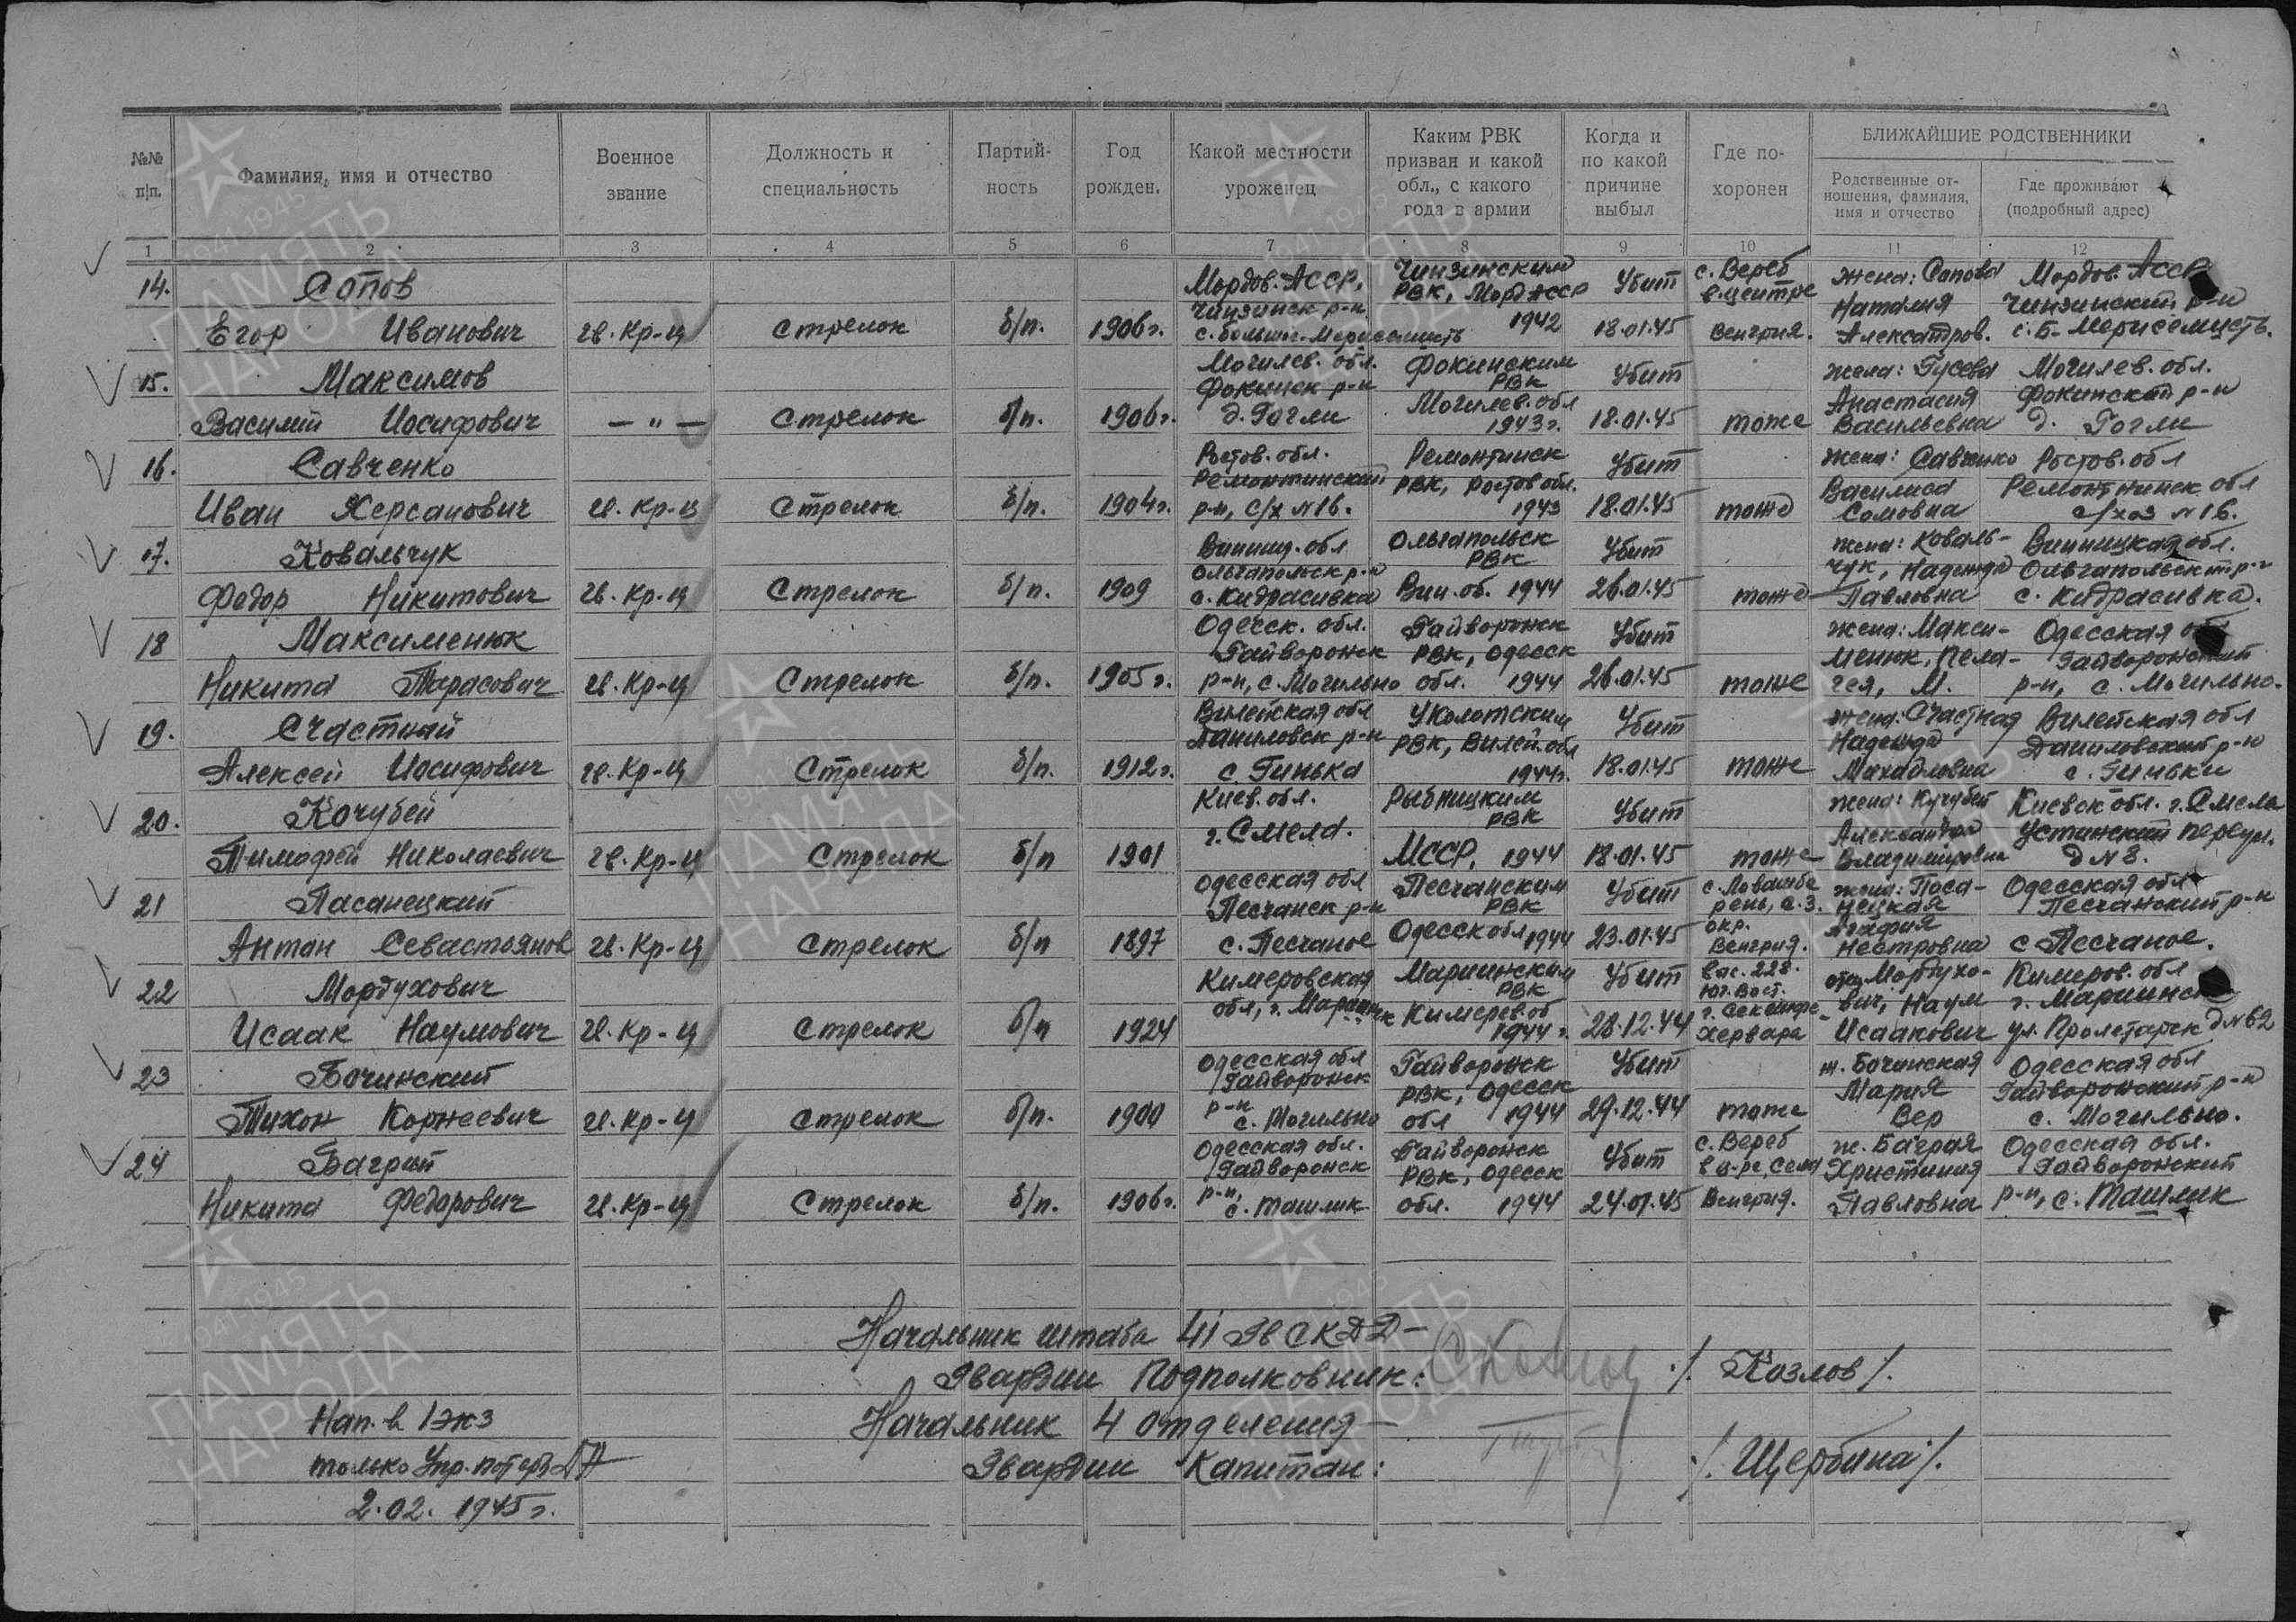 №№ п/п.
Фамилия, имя и отчество
Военное звание
Должность и специальность
Партий-ность
Год рожден.
Какой местности уроженец
Каким РВК призван и какой обл., с какого года в армии
Когда и по какой причине выбыл
Где по-хоронен
БЛИЖАЙШИЕ РОДСТВЕННИКИ
Родственные от-ношения, фамилия, имя и отчество
Где проживают (подробный адрес)
1 2 3 4 5 6 7 8 9 10 11 12
14. Сопов Мордов. АССР, Чинзинским Убит с. Вереб жена: Сопова Мордов. АССР
Чинзинск р-н РВК, Морд АССР в центре Наталия Чинзинский р-н
Егор Иванович гв. Кр-ц Стрелок б/п. 1906г. 1942 18.01.45 Венгрия.
15. Максимов Могилев. обл. Фокинским Убит жена: Гусева Могилев. обл.
Фокинск р-н РВК Анастасия Фокинский р-н
Василий Иосифович — " — Стрелок б/п. 1906г. д. Гогли Могилев. обл 1943г. 18.01.45 тоже Васильевна д. Гогли
16. Савченко Ростов. обл. Ремонтинск Убит жена: Савченко Ростов. обл
Ремонтинский РВК, Ростов обл. Василиса Ремонтнинск обл
Иван Херсанович гв. Кр-ц Стрелок б/п. 1904г. р-н, с/х №16. 1943 18.01.45 тоже с/хоз №16.
17. Ковальчук Винниц. обл Ольгапольск Убит жена: Коваль- Винницкая обл.
Ольгапольск р-н РВК чук, Надежда Ольгапольский р-н
Федор Никитович гв. Кр-ц Стрелок б/п. 1909 с. Кидрасивка Вин. об. 1944 26.01.45 тоже Павловна с. Кидрасивка.
18 Максименюк Одесск. обл. Гайворонск Убит жена: Макси- Одесская обл
Гайворонск РВК, Одесск менюк, Пела- Гайворонский
Никита Тарасович гв. Кр-ц Стрелок б/п. 1905г. р-н, с. Могильно обл. 1944 26.01.45 тоже гея, М. р-н, с. Могильно.
19. Счастный Вилейская обл Убит жена: Счастная Вилейская обл
Даниловск р-н РВК, Вилей. обл Надежда Даниловский р-н
Алексей Иосифович гв. Кр-ц Стрелок б/п. 1912г. с. Гинька 1944г. 18.01.45 тоже с. Гиньки
20. Кочубей Киев. обл. Рыбницким Убит жена: Кучубей Киевск обл. г. Смела
г. Смела. РВК Устинский переул.
Тимофей Николаевич гв. Кр-ц Стрелок б/п 1901 МССР, 1944 18.01.45 тоже Владимировна д №8.
21 Пасанецкий Одесская обл Песчанским Убит жена: Паса- Одесская обл
Песчанск р-н РВК нецкая Песчанский р-н
окр. Агафия
Антон Севастьянов гв. Кр-ц Стрелок б/п 1897 с. Песчаное Одесск обл 1944 23.01.45 Венгрия. Нестровна с Песчаное.
22 Мордухович Кимеровская Мариинским Убит выс. 228. отец Мордухо- Кимеров. обл
обл, г. Мариинск РВК Юг. Вост. вич, Наум г. Мариинск
Исаак Наумович гв. Кр-ц Стрелок б/п 1924 Кимеров. об 1944г. 28.12.44 г. Секешфе-хервара Исаакович ул. Пролетарск д №62
23 Бочинский Одесская обл Гайворонск Убит ж. Бочинская Одесская обл
Гайворонск РВК, Одесск Мария Гайворонский р-н
Тихон Корнеевич гв. Кр-ц Стрелок б/п. 1900 р-н с. Могильно обл 1944 29.12.44 тоже Вер с. Могильно.
24 Багрий Одесская обл. Гайворонск Убит с. Вереб ж. Баграя Одесская обл.
Гайворонск РВК, Одесск Христиния Гайворонский
Никита Федорович гв. Кр-ц Стрелок б/п. 1906г. р-н, с. Ташлик обл. 1944 24.01.45 Венгрия. Павловна р-н, с. Ташлик
Начальник штаба 41 Гв СКДД —
Гвардии Подполковник: /. Козлов /.
Нап. в 1 экз Начальник 4 отделения —
только Упр. потерь ДА Гвардии Капитан: ./. Щербина /.
2.02. 1945г.
1941 1945
ПАМЯТЬ НАРОДА